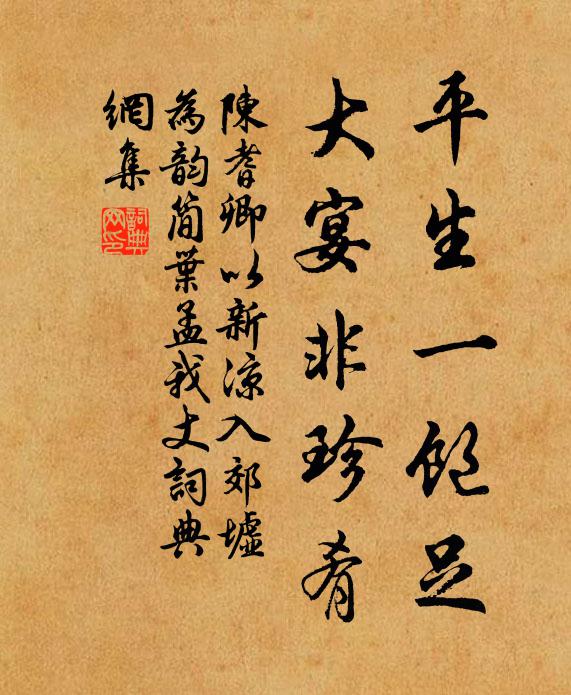 平生一飽足
大宴非珍肴
陳耆卿以新涼入郊墟
為韵簡葉孟我丈詞典
網集
詞典網印